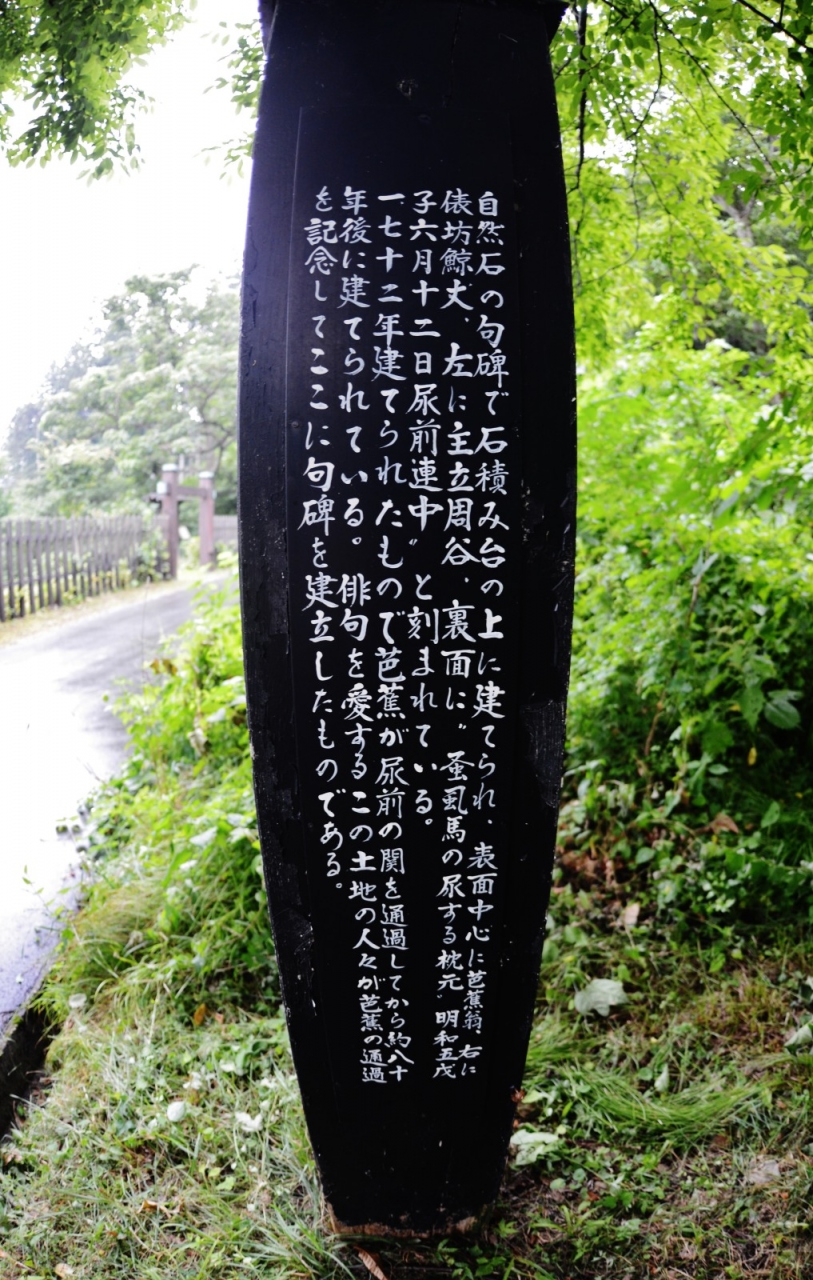 自然石の句碑で石積み台の上に建てられ、表面中心に芭蕉翁、右に
俵坊鯨丈、左に主立周谷、裏面に〝蚤虱馬の尿する枕元〟明和五戊
子六月十二日尿前連中〟と刻まれている。
一、七十二年建てられたもので芭蕉が尿前の関を通過してから約八十
年後に建てられている。俳句を愛するこの土地の人々が芭蕉の通過
を記念してここに句碑を建立したものである。